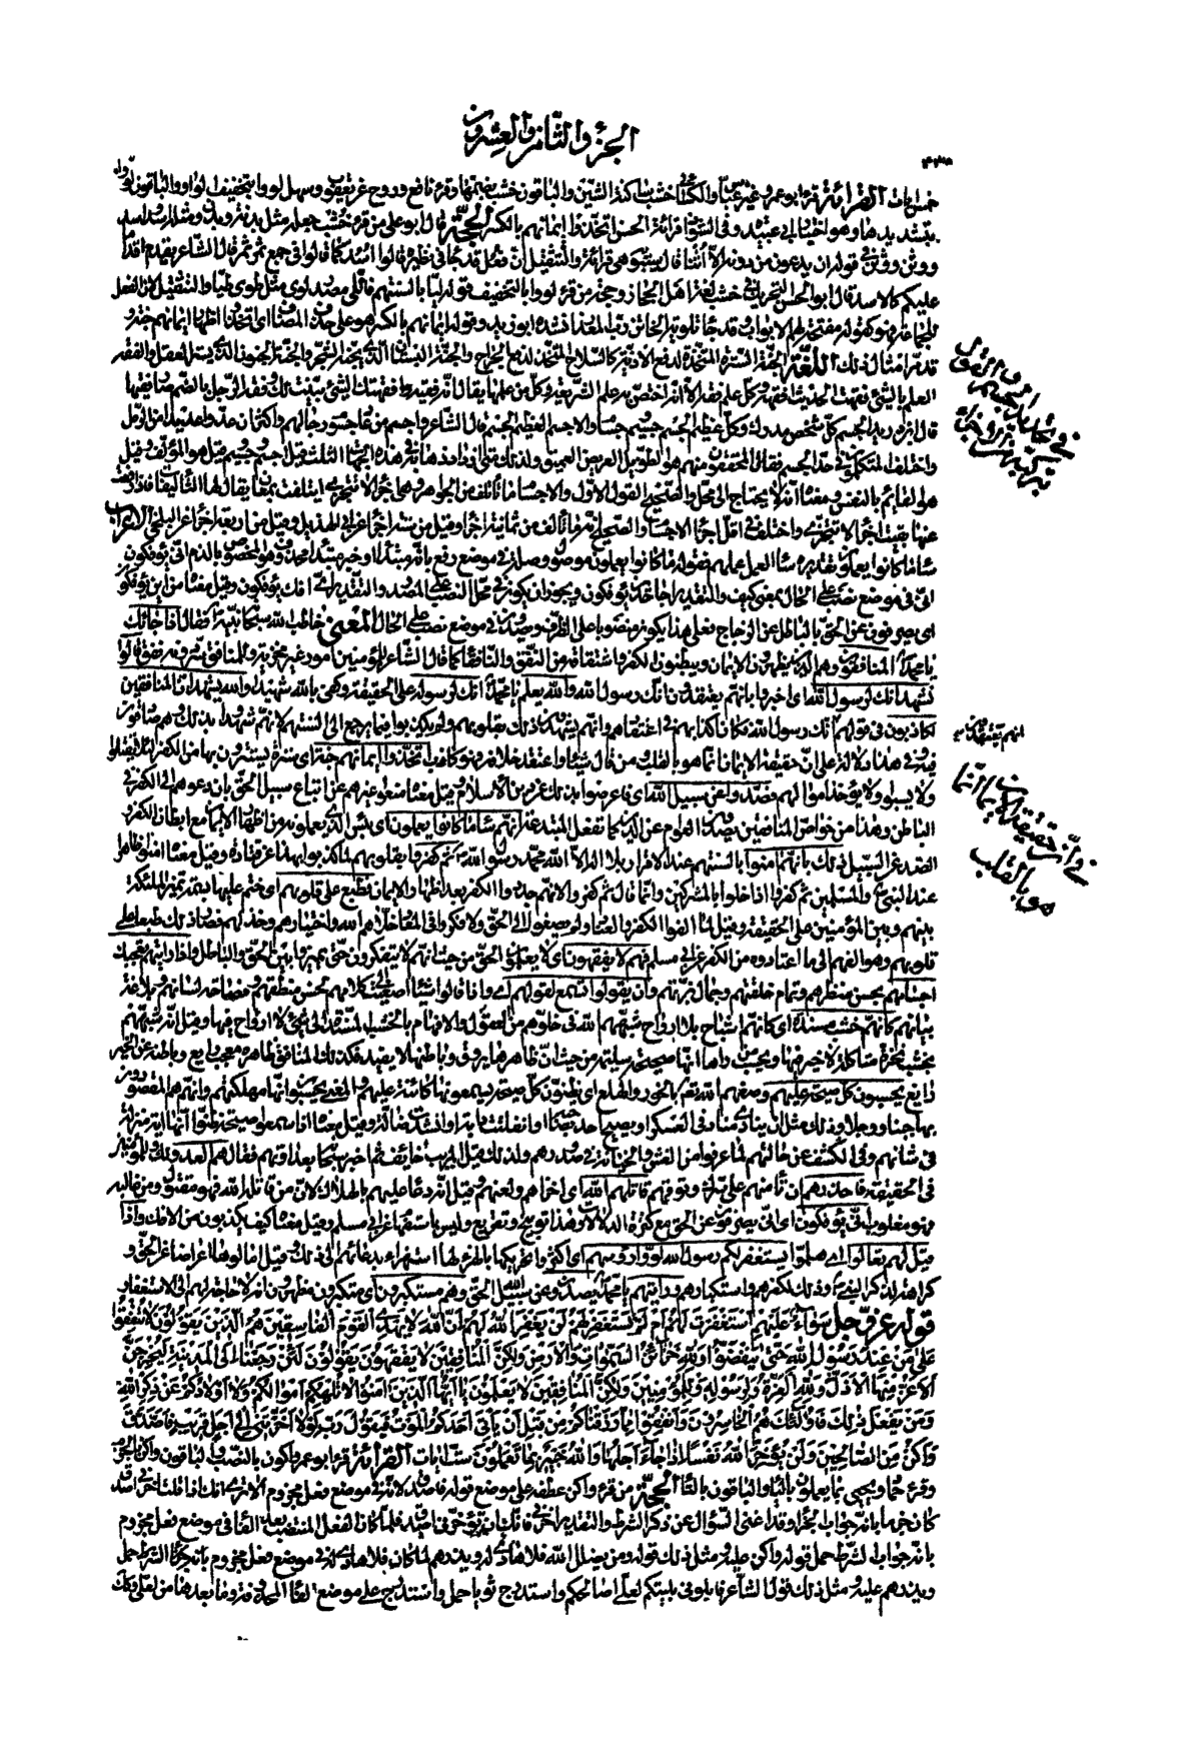 الجزء والثامن والعشرون
٤٣٨
ثمان ايات القراءة قرء ابو عمرو غير عباس والكسائى خشب ساكنة الشين والباقون خشب بضمتها وقرء نافع وروح عن يعقوب وسهل لووا بتخفيف الواو والباقون لووا
بتشديدها وهو اختيار ابى عبيد وفى الشواذ قراءة الحسن اتخذوا ايمانهم بالكسر الحجة قال ابو على من قرء خشب جعله مثل بدنة وبدن ومثله اسد واسد
ووثن ووثن فى قوله ان يدعون من دونه الا اثنا قال سيبويه هى قراءة والتثقيل ان فعل قد جاء فى نظيره قالوا اسد كما قالوا فى جمع ثمر ثمر قال الشاعر يقدم اقداما
عليكم كالاسد قال ابو الحسن التحريك فى خشب لغة اهل الحجاز وحجة من قرء لووا بالتخفيف قوله ليا بالسنتهم فاللى مصدر لوى مثل طوى طيا والتثقيل لان الفعل
للجماعة فهو كقوله مفتحة لهم الابواب وقد جاء
قد مر امثال ذلك اللغة الجنة السترة المتخذة لدفع الاذية كالسلاح المتخذ لدفع الجراح والجنة البستان الذى يجنه الشجر والجنة الجنون الذى يستر العقل والفقه
العلم بالشىء فقهت الحديث افقهه وكل علم فقه الا انه اختص به علم الشريعة وكل من علمها يقال انه فقيه وافقهتك الشىء بينته لك وفقه الرجل بالضم صار فقيها
قال ابن دريد الجسم كل شخص مدرك وكل عظيم الجسم جسيم وجسام والاجسم العظيم الجسم قال الشاعر واجسم من عاد جسوم رجالهم واكثر ان عدوا عديدا من الرمل
واختلف المتكلمون فى حد الجسم فقال المحققون منهم هو الطويل العريض العميق ولذلك متى ازداد ذهابه فى هذه الجهات الثلث قيل اجسم وجسيم وقيل هو المؤلف وقيل
هو القائم بالنفس ومعناه انه لا يحتاج الى محل والصحيح القول الاول والاجسام ما تألف من الجواهر وهى اجزاء لا تتجزى ايتلفت بمعان يقال لها التأليفات فاذا رفعت
عنها بقيت اجزاء لا تتجزى واختلف فى اقل اجزاء الاجسام والصحيح انه ما تألف من ثمانية اجزاء وقيل من ستة اجزاء عن ابى الهذيل وقيل من اربعة اجزاء عن البلخى الاعراب
ساء ما كانوا يعملون تقديره ساء العمل عملهم فقوله ما كانوا يعملون موصول وصلة فى موضع رفع بانه مبتدا او خبر مبتدا محذوف وهو المخصوص بالذم انى يؤفكون
انى فى موضع نصب على الحال بمعنى كيف والتقدير اجاحدين يؤفكون ويجوز ان يكون فى محل النصب على المصدر والتقدير اى افك يؤفكون وقيل معناه من اين يؤفكون
اى يصرفون عن الحق بالباطل عن الزجاج فعلى هذا يكون منصوبا على الظرف ويصدون فى موضع نصب على الحال المعنى خاطب الله سبحانه نبيه فقال اذا جاءك
يا محمد المنافقون وهم الذين يظهرون الايمان ويبطنون الكفر واشتقاقه من النفق والنافقاء كما قال الشاعر للمؤمنين امور غير مخزية وللمنافق سر دونه نفق قالوا
نشهد انك لرسول الله اى اخبروا بانهم يعتقدون انك رسول الله والله يعلم يا محمد انك لرسوله على الحقيقة وكفى بالله شهيدا والله يشهد ان المنافقين
لكاذبون فى قولهم انك رسول الله فكان اكذابهم فى اعتقادهم وانهم يشهدون ذلك بقلوبهم ولم يكذبوا فيما يرجع الى السنتهم لانهم شهدوا بذلك وهم صادقون
فيه وفى هذا دلالة على ان حقيقة الايمان انما هو بالقلب ومن قال شيئا واعتقد خلافه فهو كاذب اتخذوا ايمانهم جنة اى سترة يستترون بها من الكفر لئلا يقتلوا
ولا يسبوا ولا يؤخذ اموالهم فصدوا عن سبيل الله اى فاعرضوا بذلك عن دين الاسلام وقيل معناه منعوا غيرهم عن اتباع سبيل الحق بان دعوهم الى الكفر فى
الباطن وهذا من خواص المنافقين يصدون العوام عن الدين كما تفعل المبتدعة انهم ساء ما كانوا يعملون اى بئس الذى يعملونه من اظهار الايمان مع ابطان الكفر و
الصد عن السبيل ذلك بانهم امنوا بالسنتهم عند الاقرار بلا اله الا الله محمد رسول الله ثم كفروا بقلوبهم لما كذبوا بهذا عن قتادة وقيل معناه امنوا ظاهرا
عند النبى والمسلمين ثم كفروا اذا خلوا بالمشركين وانما قال ثم كفروا لانهم جددوا الكفر بعد اظهار الايمان فطبع على قلوبهم اى ختم عليها بسمة تميز الملئكة
بينهم وبين المؤمنين على الحقيقة وقيل لما الفوا الكفر والعناد ولم يصغوا الى الحق ولا فكروا فى المعاد خلاهم الله واختيارهم وخذلهم فصار ذلك طبعا على
قلوبهم وهو الفهم الى ما اعتادوه من الكفر عن ابى مسلم فهم لا يفقهون اى لا يعلمون الحق من حيث انهم لا يتفكرون حتى يميزوا بين الحق والباطل واذا رايتهم تعجبك
اجسامهم بحسن منظرهم وتمام خلقتهم وجمال بزتهم وان يقولوا تسمع لقولهم اى واذا قالوا شيئا اصغيت الى كلامهم لحسن منطقهم وفصاحة لسانهم وبلاغة
بيانهم كانهم خشب مسندة اى كانهم اشباح بلا ارواح شبههم الله فى خلوهم من العقول والافهام بالخشب المسندة الى شىء لا ارواح فيها وقيل انه شبههم
بخشب نخرة متاكلة لا خير فيها ويحسب من راها انها صحيحة سليمة من حيث ان ظاهرها يروق وباطنها لا يفيد فكذلك المنافق ظاهره معجب رايع وباطنه عن الخير
زايغ يحسبون كل صيحة عليهم وصفهم الله تعالى بالخور والهلع اى يظنون كل صيحة يسمعونها كائنة عليهم والمعنى يحسبون انها مهلكتهم وانهم هم المقصودون
بها جبنا ووجلا وذلك مثل ان ينادى مناد فى العسكر او يصيح احد بصاحبه او انفلتت دابة او انشدت ضالة وقيل معناه اذا سمعوا صيحة ظنوا انها اية منزلة
فى شانهم وفى الكشف عن حالهم لما عرفوا من الغش والخيانة فى صدورهم ولذلك قيل المريب خائف ثم اخبر سبحانه بعداوتهم فقال هم العدو لك وللمؤمنين
فى الحقيقة فاحذرهم ان تامنهم على سرك وتوقهم قاتلهم الله اى اخزاهم ولعنهم وقيل انه دعاء عليهم بالهلاك لان من قاتله الله فهو مقتول ومن غالبه
فهو مغلوب انى يؤفكون اى انى يصرفون عن الحق مع كثرة الدلالات وهذا توبيخ وتقريع وليس باستفهام عن ابى مسلم وقيل معناه كيف يكذبون من الافك واذا
قيل لهم تعالوا اى هلموا يستغفر لكم رسول الله لووا رؤسهم اى اكثروا تحريكها بالهزء لها استهزاء بدعائهم الى ذلك وقيل امالوها اعراضا عن الحق و
كراهة لذكر النبى وذلك لكفرهم واستكبارهم ورايتهم يا محمد يصدون عن سبيل الحق وهم مستكبرون اى متكبرون مظهرون انه لا حاجة لهم الى الاستغفار
قوله عز وجل سَوَاءٌ عَلَيْهِمْ أَسْتَغْفَرْتَ لَهُمْ أَمْ لَمْ تَسْتَغْفِرْ لَهُمْ لَنْ يَغْفِرَ اللهُ لَهُمْ إِنَّ اللهَ لَا يَهْدِى الْقَوْمَ الْفَاسِقِينَ هُمُ الَّذِينَ يَقُولُونَ لَا تُنْفِقُوا
عَلَى مَنْ عِنْدَ رَسُولِ اللهِ حَتَّى يَنْفَضُّوا وَلِلَّهِ خَزَائِنُ السَّمٰوَاتِ وَالْأَرْضِ وَلَكِنَّ الْمُنَافِقِينَ لَا يَفْقَهُونَ يَقُولُونَ لَئِنْ رَجَعْنَا إِلَى الْمَدِينَةِ لَيُخْرِجَنَّ
الْأَعَزُّ مِنْهَا الْأَذَلَّ وَلِلَّهِ الْعِزَّةُ وَلِرَسُولِهِ وَلِلْمُؤْمِنِينَ وَلَكِنَّ الْمُنَافِقِينَ لَا يَعْلَمُونَ يَا أَيُّهَا الَّذِينَ آمَنُوا لَا تُلْهِكُمْ أَمْوَالُكُمْ وَلَا أَوْلَادُكُمْ عَنْ ذِكْرِ اللهِ
وَمَنْ يَفْعَلْ ذَلِكَ فَأُولَئِكَ هُمُ الْخَاسِرُونَ وَأَنْفِقُوا مِمَّا رَزَقْنَاكُمْ مِنْ قَبْلِ أَنْ يَأْتِىَ أَحَدَكُمُ الْمَوْتُ فَيَقُولَ رَبِّ لَوْلَا أَخَّرْتَنِى إِلَى أَجَلٍ قَرِيبٍ فَأَصَّدَّقَ
وَأَكُنْ مِنَ الصَّالِحِينَ وَلَنْ يُؤَخِّرَ اللهُ نَفْسًا إِذَا جَاءَ أَجَلُهَا وَاللهُ خَبِيرٌ بِمَا تَعْمَلُونَ ست ايات القراءة قرء ابو عمرو واكون بالنصب والباقون واكن بالجزم
وقرء حماد ويحيى بما يعملون بالياء والباقون بالتاء الحجة من قرء واكن عطفه على موضع قوله فاصدق لانه فى موضع فعل مجزوم الا ترى انك اذا قلت اخرنى اصدق
كان جزما بانه جواب الجزاء وقد اغنى السؤال عن ذكر الشرط والتقدير اخرنى فانك ان تؤخرنى اصدق فلما كان الفعل المنتصب بعد الفاء فى موضع فعل مجزوم
بانه جواب الشرط حمل قوله واكن عليه ومثل ذلك قوله ومن يضلل الله فلا هادى له ويذرهم لما كان فلا هادى له فى موضع فعل مجزوم بانه جزاء الشرط حمل
ويذرهم عليه ومثل ذلك قول الشاعر فابلونى بليتكم لعلى اصالحكم واستدرج نويا حمل واستدرج على موضع الفاء المحذوفة وما بعدها من لعلى وكذلك
انهم يعتقدون
فى ان حقيقة الايمان انما
هو بالقلب